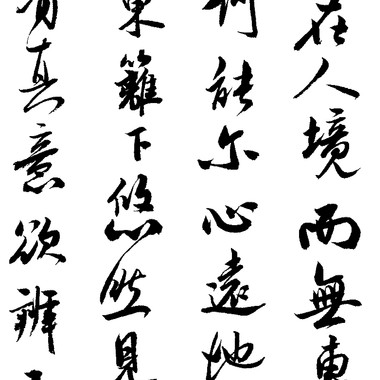 在人境而無車
何能尔心遠地
東籬下悠然見
有真意欲辨